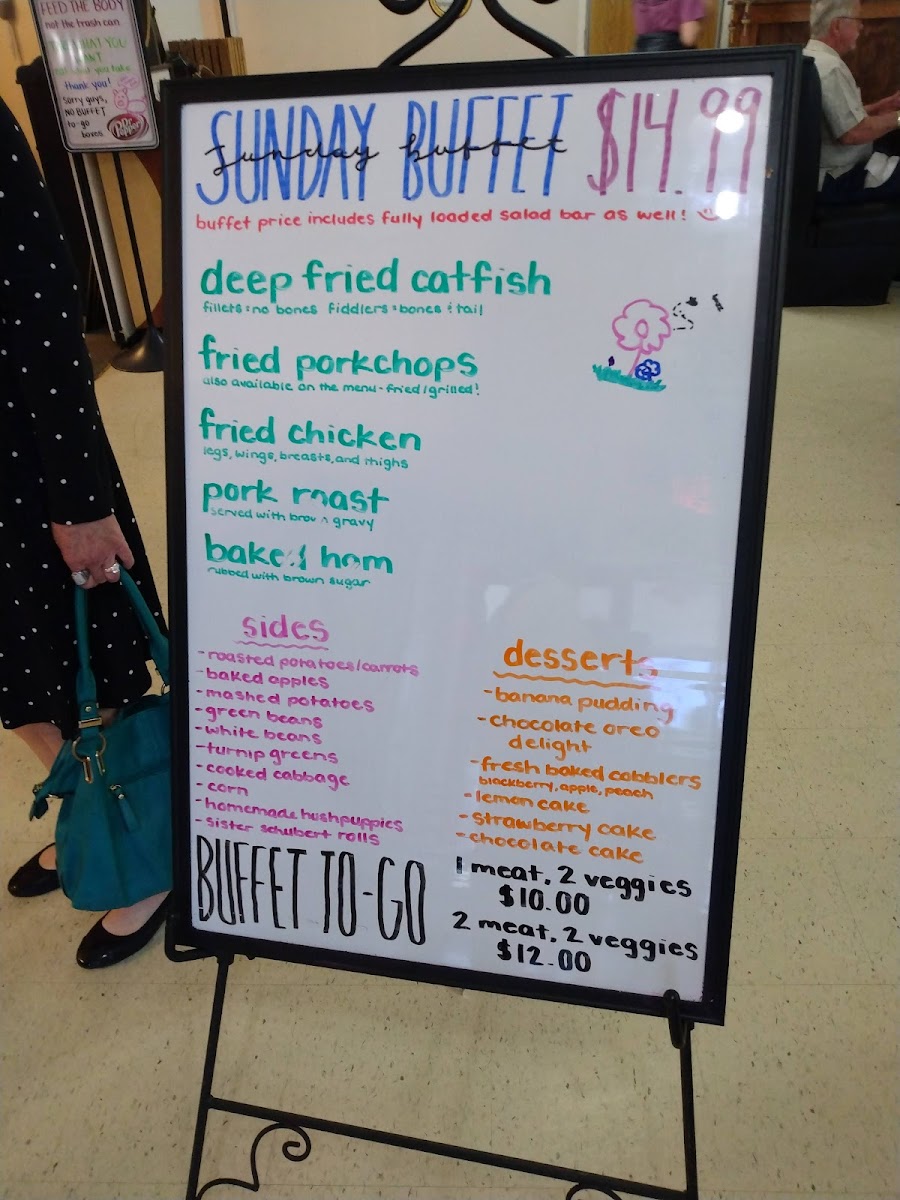 FEED THE BODY
not the trash can
Thank you!
Sorry guys,
NO BUFFET
to-go
boxes
Dr Pepper
SUNDAY BUFFET $14.99
Sunday buffet
buffet price includes fully loaded salad bar as well!
deep fried catfish
fillets=no bones fiddlers=bones & tail
fried porkchops
also available on the menu-fried/grilled!
fried chicken
legs, wings, breasts, and thighs
pork roast
served with brown gravy
baked ham
rubbed with brown sugar
sides
-roasted potatoes/carrots
-baked apples
-mashed potatoes
-green beans
-white beans
-turnip greens
-cooked cabbage
-corn
-homemade hushpuppies
-sister schubert rolls
desserts
-banana pudding
-chocolate oreo
delight
-fresh baked cobblers
blackberry, apple, peach
-lemon cake
-strawberry cake
-chocolate cake
BUFFET TO-GO
1 meat, 2 veggies
$10.00
2 meat, 2 veggies
$12.00